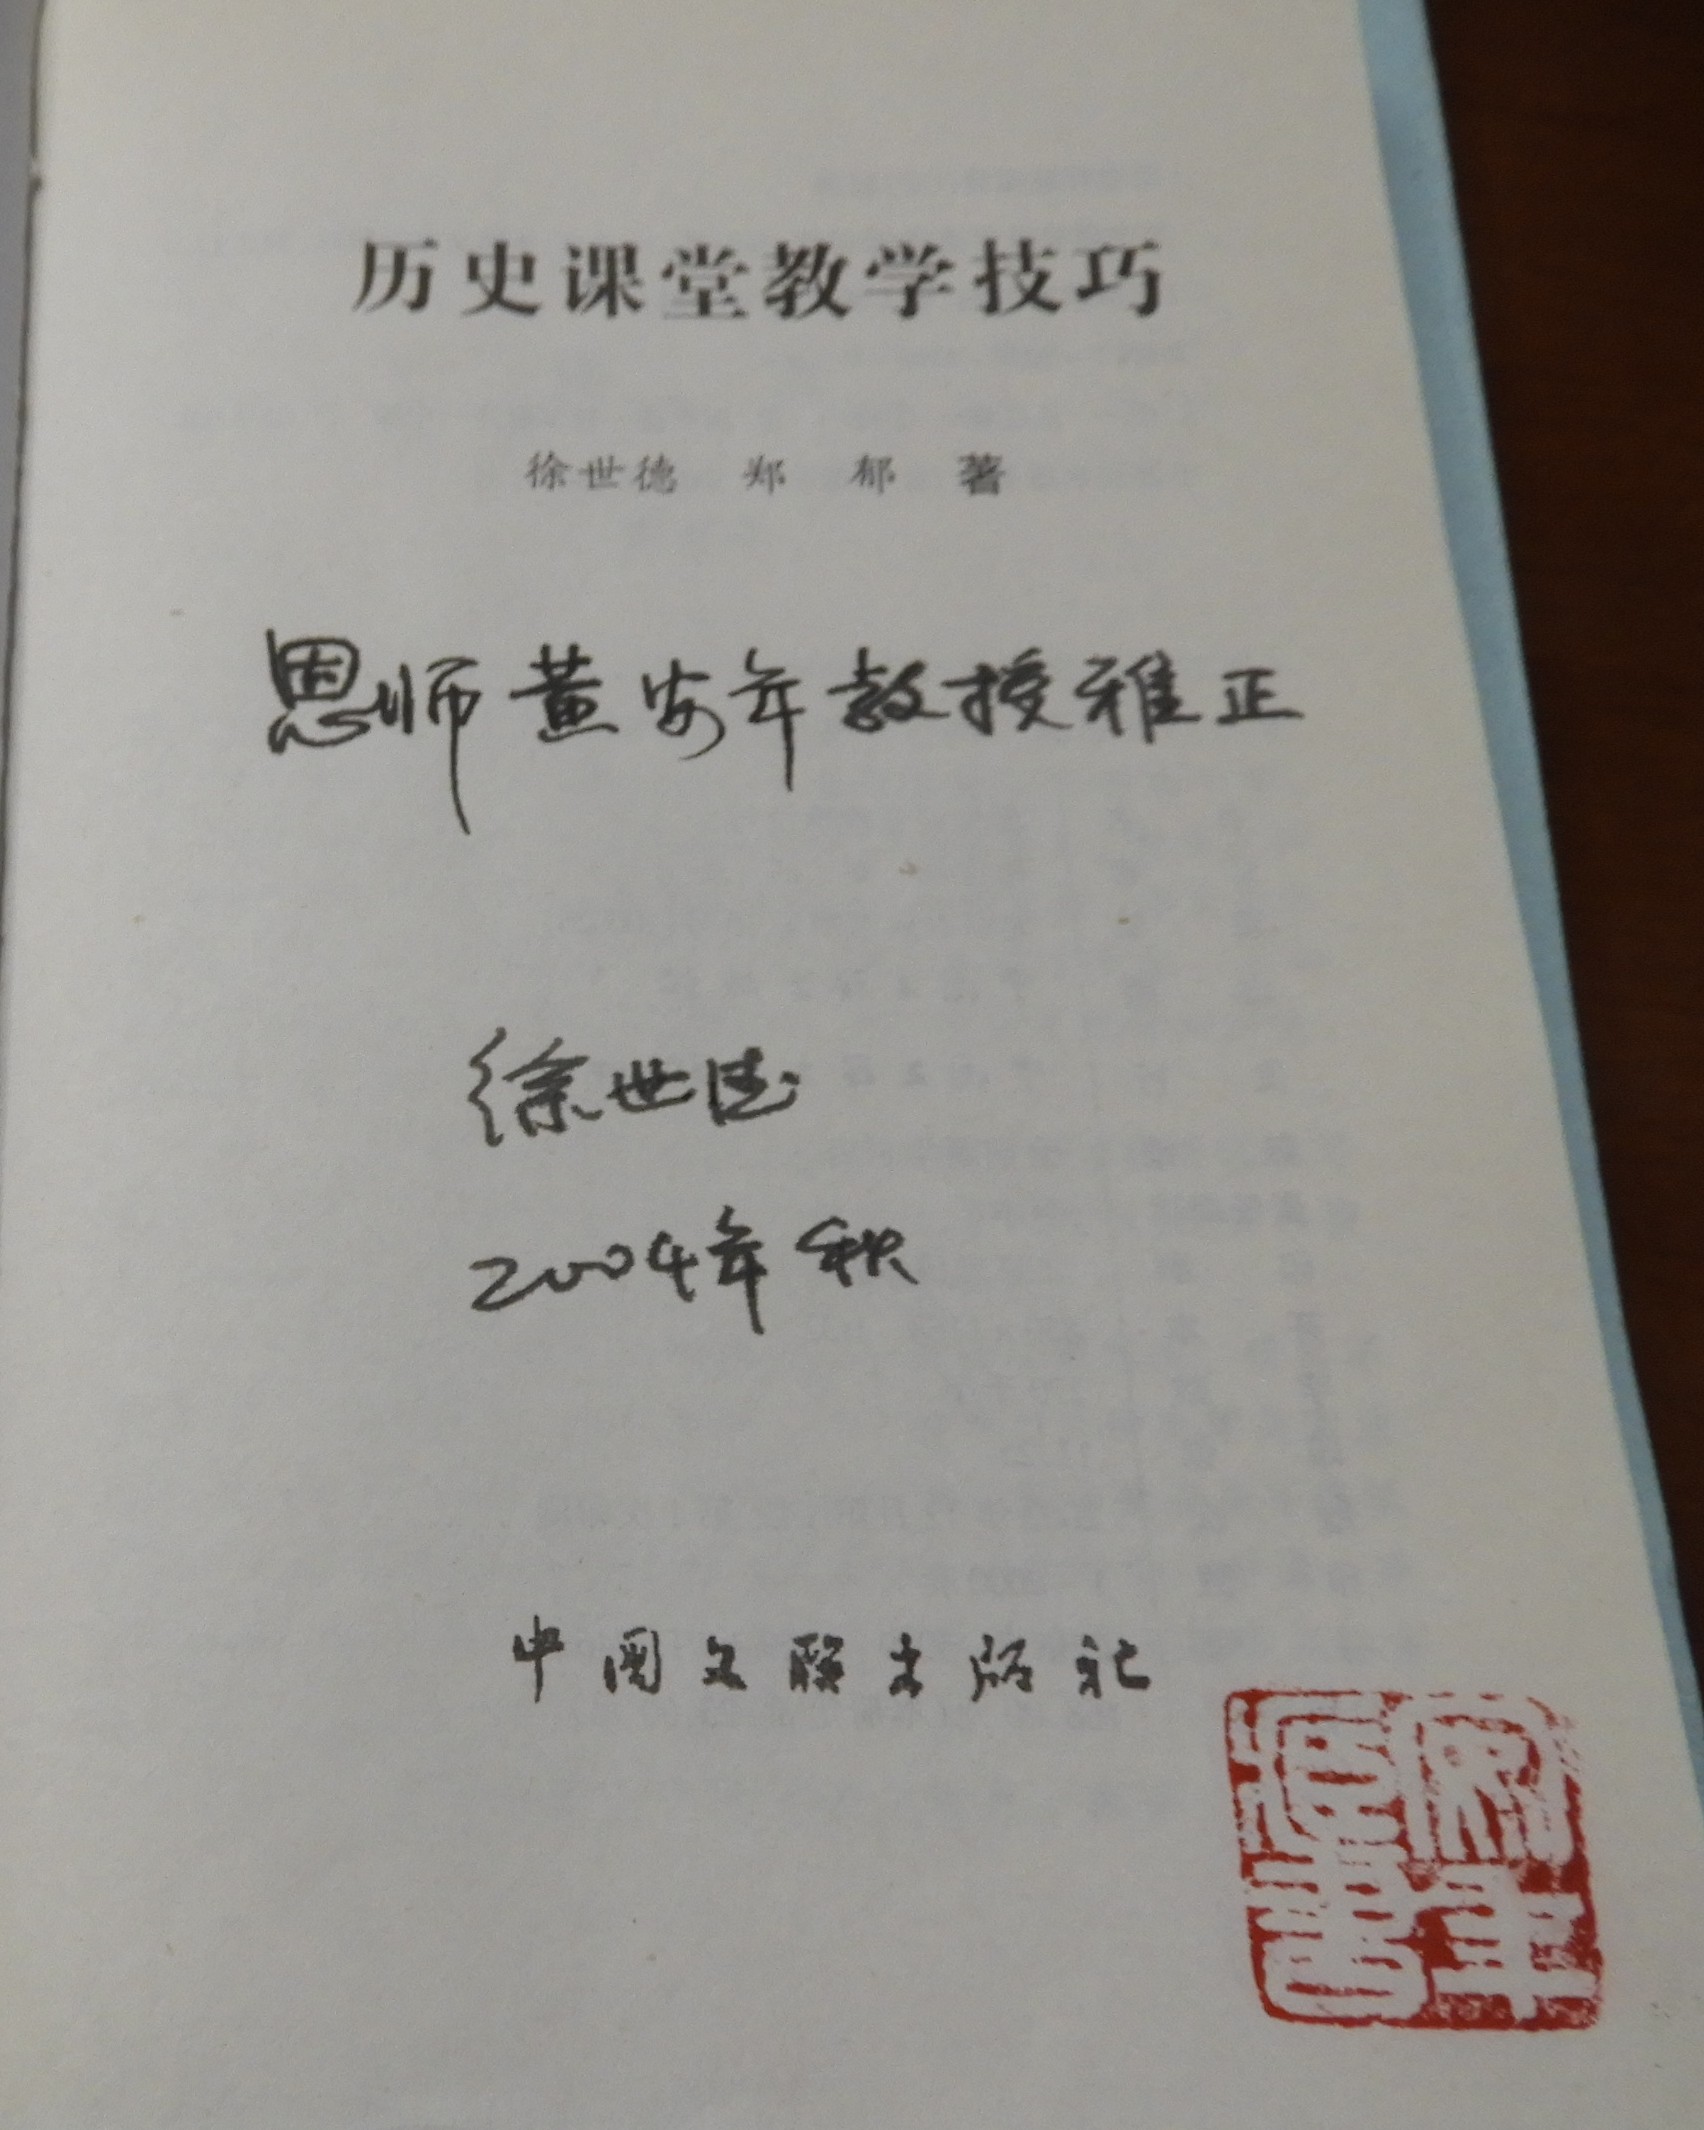 历史课堂教学技巧
徐世德 郑 郁 著
恩师黄安年教授雅正
徐世德
2004年秋
中国文联出版社